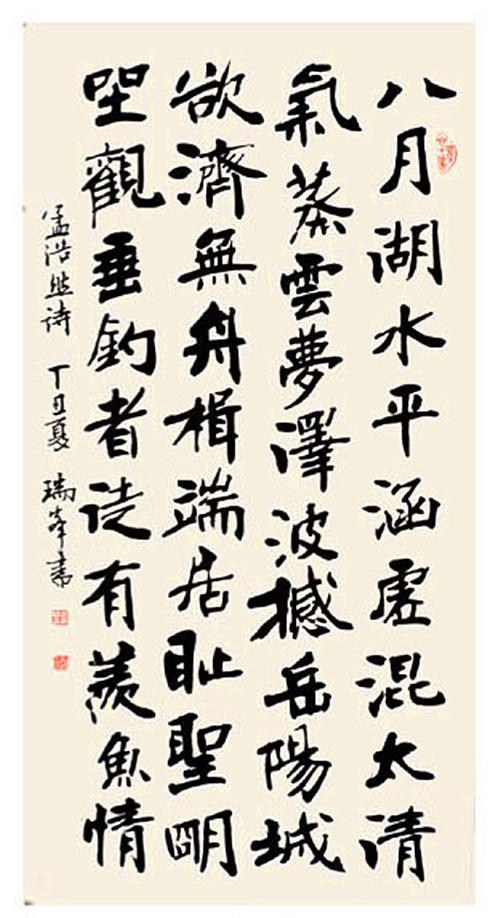 八月湖水平涵虛混太清
氣蒸雲夢澤波撼岳陽城
欲濟無舟楫端居恥聖明
坐觀垂釣者徒有羨魚情
孟浩然诗 丁丑夏 瑞峰書